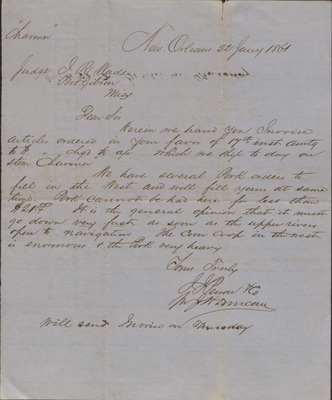 "Charmer"
New Orleans 22 Jany 1861
Judge
Port Gibson
Miss
Dear Sir
Herein we hand you Invoice
articles ordered in your favor of 17th inst
to $ which we ship to day on
stmr Charmer
We have several Pork orders to
fill in the West and will fill yours at same
time. Pork cannot be had here for less than
It is the general opinion that it must
go down very fast as soon as the upper rivers
open to navigation. The Corn Crop in the West
is enormous & the Pork very heavy
Yours Truly
Will send Invoice on Thursday